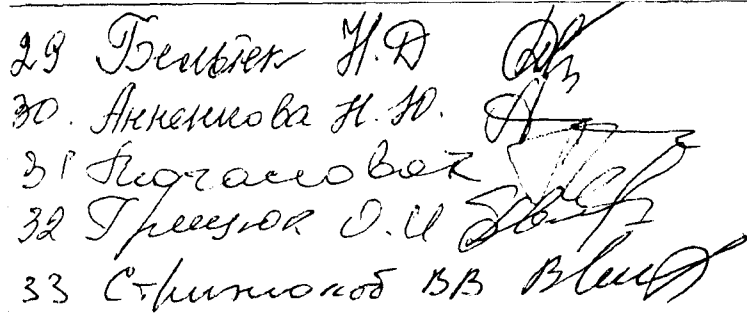 29 Бельтек Н.Д
30. Анненкова Н.Ю.
31
32 Грицюк О.И
33 Стрижаков ВВ